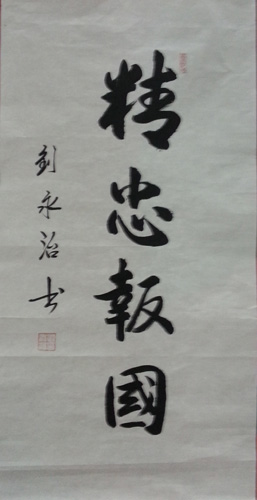 精忠報國
劉永治书